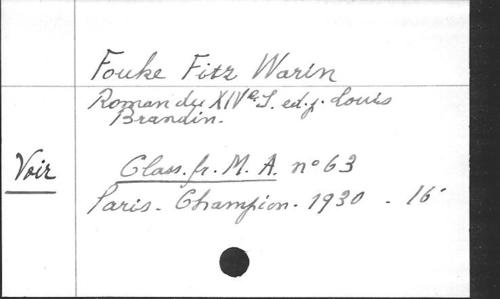 Fouke Fitz Warin
Roman du XIVe S. ed. p. Louis
Brandin.
Voir
Class. fr. M. A. n° 63
Paris - Champion - 1930 - 16°